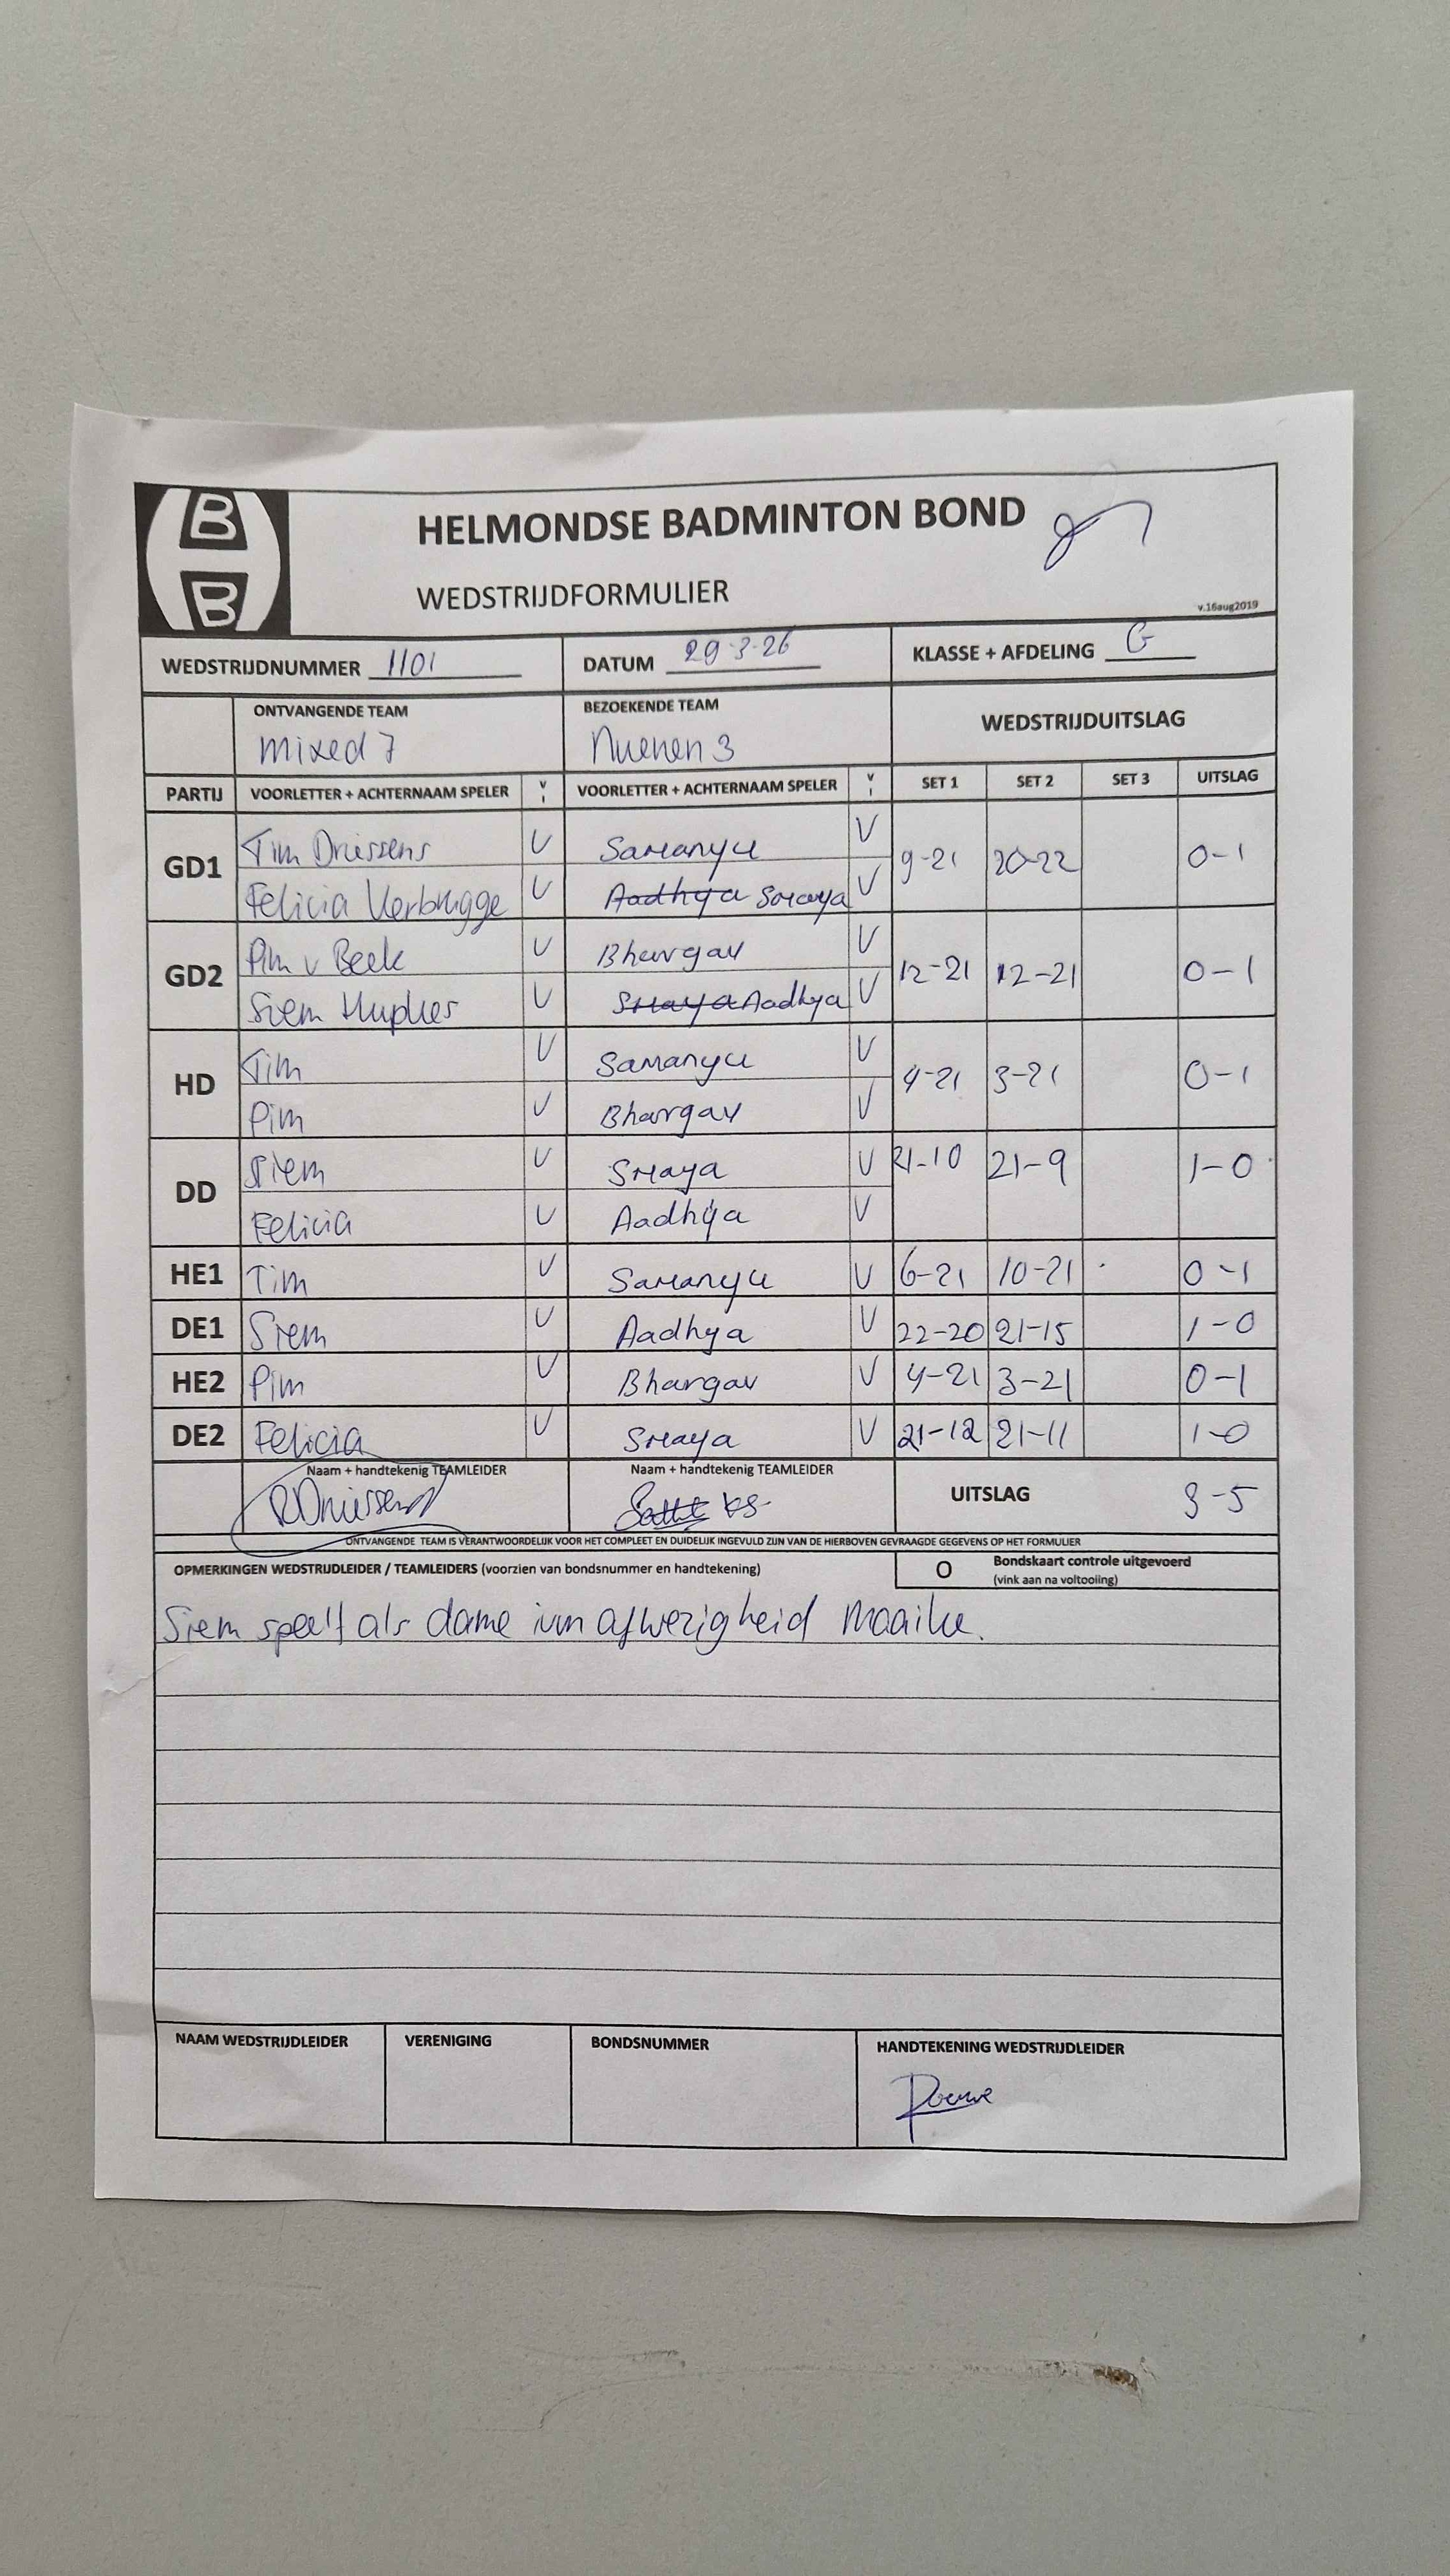 B
B
HELMONDSE BADMINTON BOND
WEDSTRIJDFORMULIER
v.16aug2019
WEDSTRIJDNUMMER 1101 DATUM 29-3-26 KLASSE + AFDELING G
ONTVANGENDE TEAM BEZOEKENDE TEAM WEDSTRIJDUITSLAG
mixed 7 Nuenen 3
PARTIJ VOORLETTER + ACHTERNAAM SPELER V I VOORLETTER + ACHTERNAAM SPELER V I SET 1 SET 2 SET 3 UITSLAG
GD1 Tim Driessens V Samanyu V 9-21 20-22 0-1
Felicia Verbrugge V Aadhya Smaya V
GD2 Pim v Beek V Bhargav V 12-21 12-21 0-1
Siem V Smaya Aadhya V
HD Tim V Samanyu V 4-21 3-21 0-1
Pim V Bhargav V
DD Siem V Smaya V 21-10 21-9 1-0
Felicia V Aadhya V
HE1 Tim V Samanyu V 6-21 10-21 0-1
DE1 Siem V Aadhya V 22-20 21-15 1-0
HE2 Pim V Bhargav V 4-21 3-21 0-1
DE2 Felicia V Smaya V 21-12 21-11 1-0
Naam + handtekenig TEAMLEIDER Naam + handtekenig TEAMLEIDER UITSLAG 3-5
RDriessens KS
ONTVANGENDE TEAM IS VERANTWOORDELIJK VOOR HET COMPLEET EN DUIDELIJK INGEVULD ZIJN VAN DE HIERBOVEN GEVRAAGDE GEGEVENS OP HET FORMULIER
OPMERKINGEN WEDSTRIJDLEIDER / TEAMLEIDERS (voorzien van bondsnummer en handtekening) O Bondskaart controle uitgevoerd
(vink aan na voltooiing)
Siem speelt als dame ivm afwezigheid Maaike.
NAAM WEDSTRIJDLEIDER VERENIGING BONDSNUMMER HANDTEKENING WEDSTRIJDLEIDER